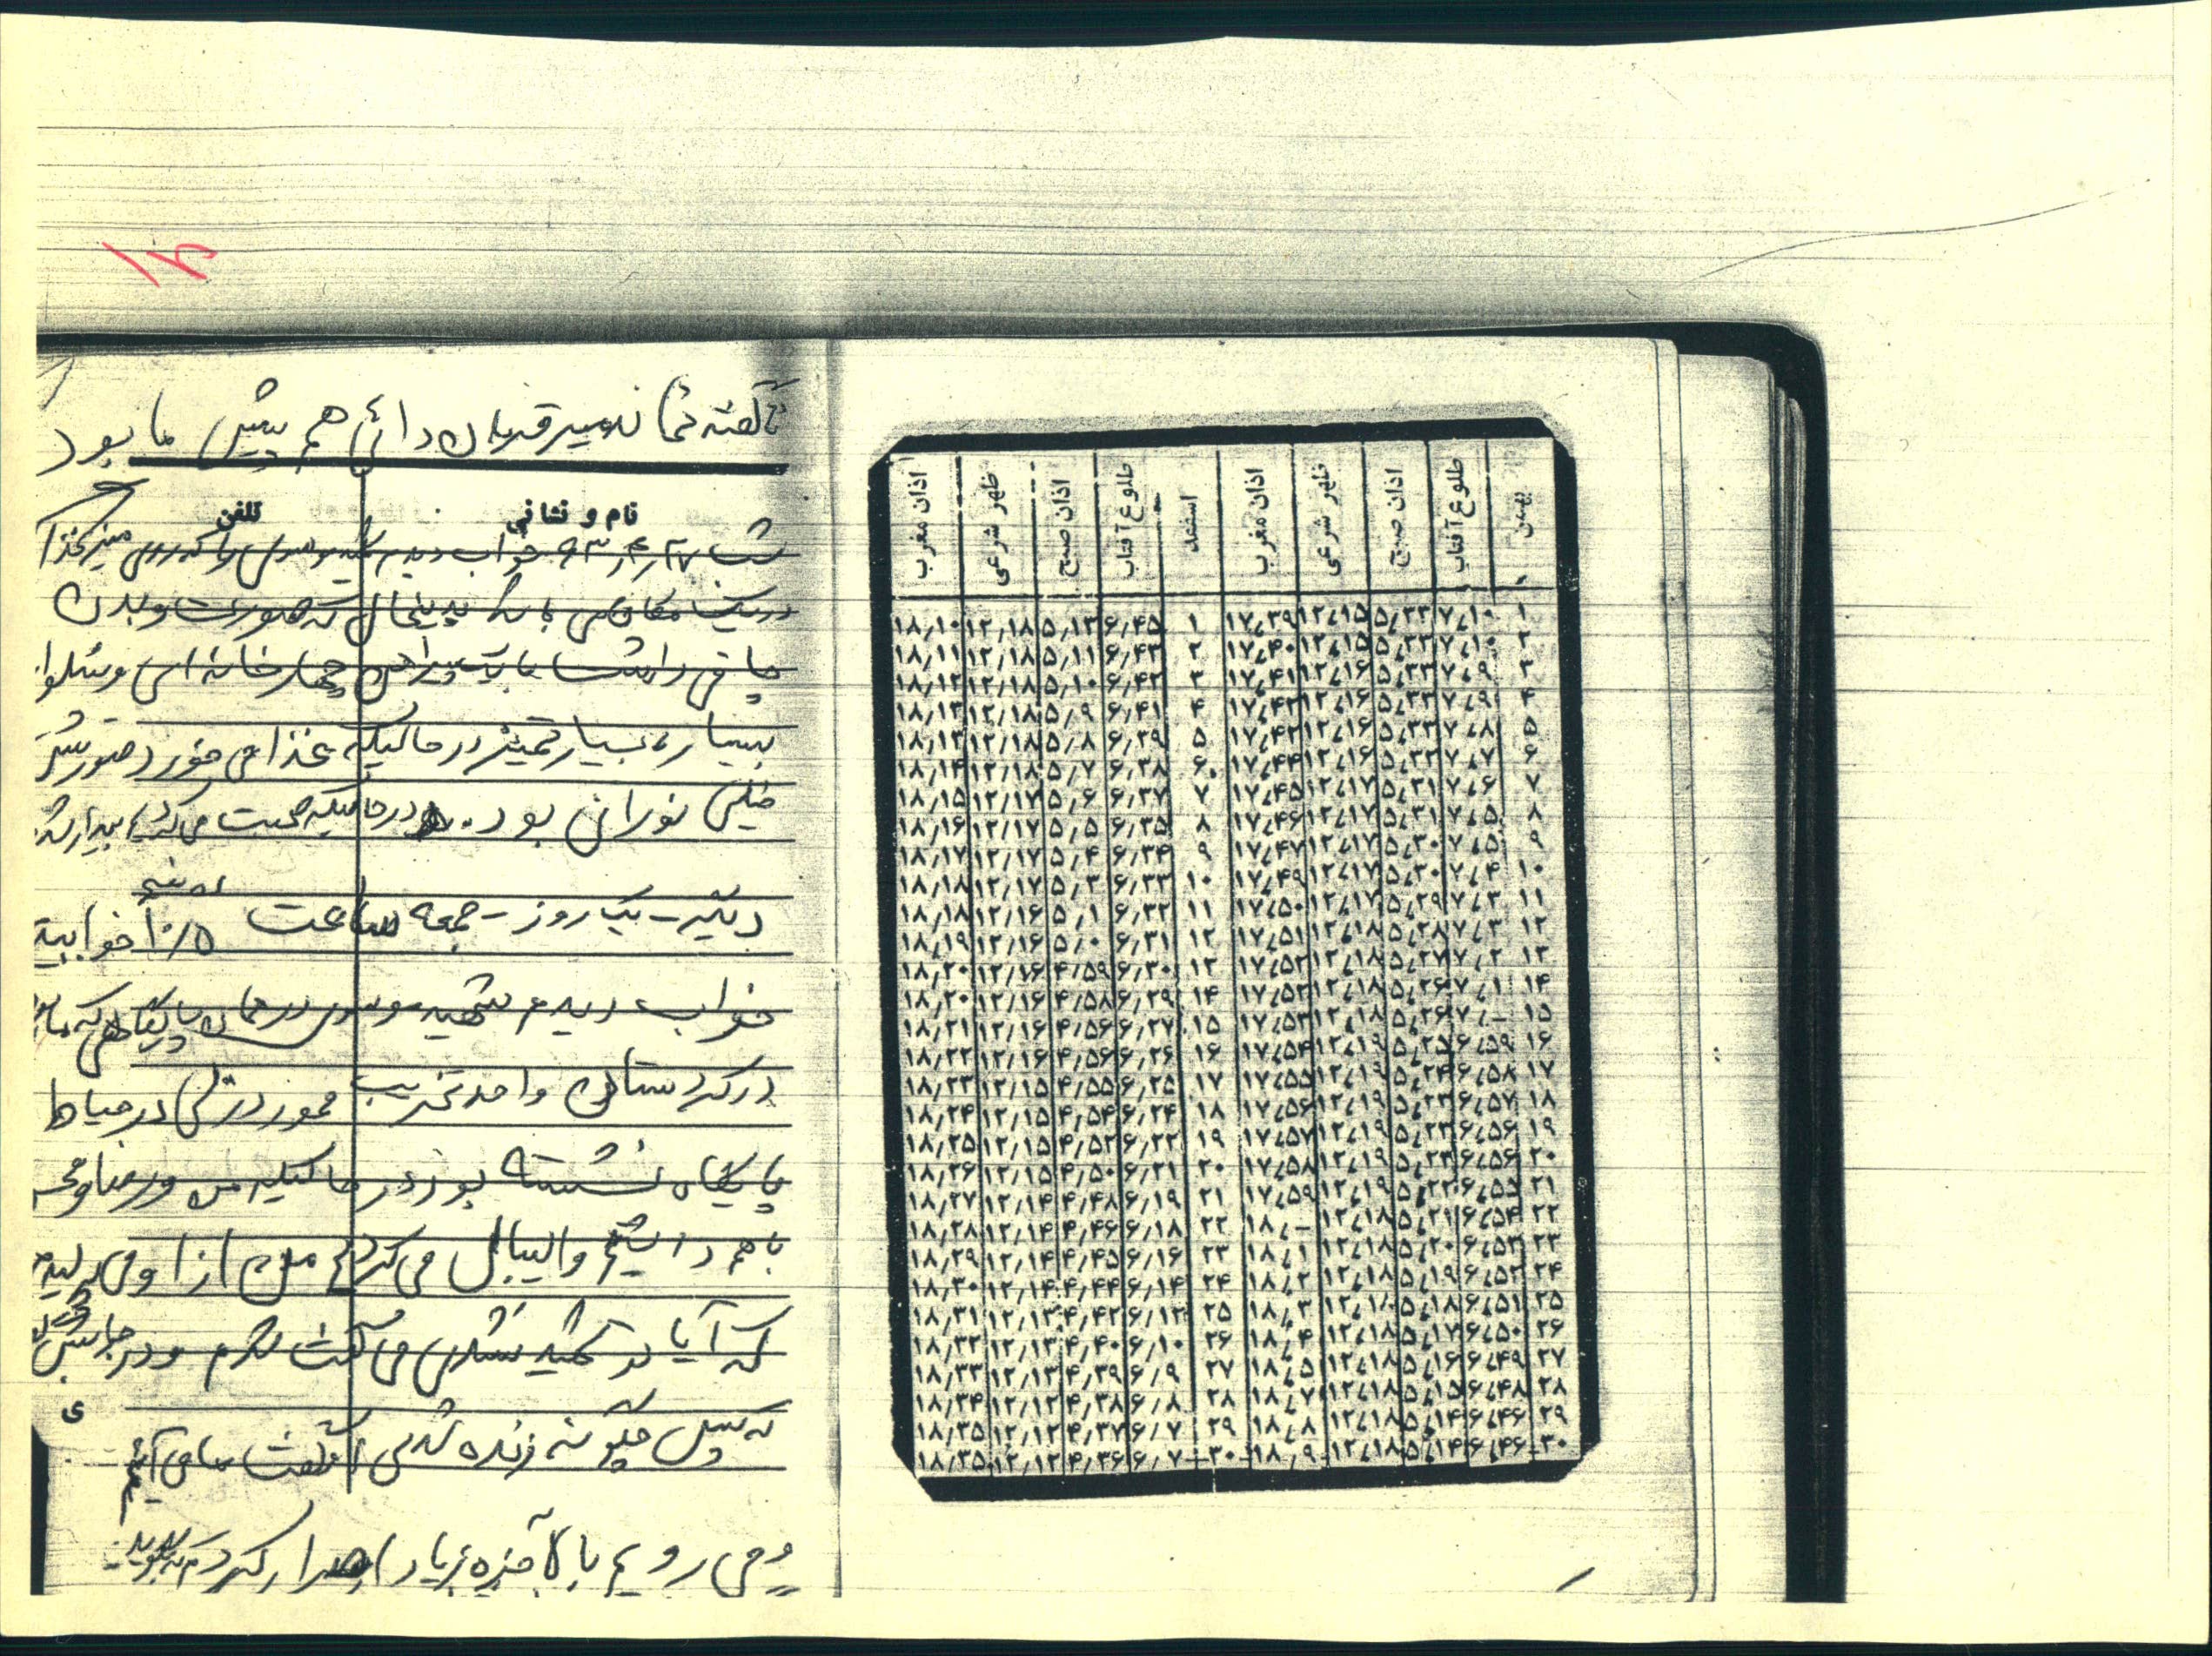 ناگفته نماند میر قربان دائی هم پیش ما بود
نام و نشانی تلفن
شب خواب دیدم شهید موسوی را که روی میز غذا
در یک مکان می با یک یخچال که صورت و بدن
چاقی داشت با یک پیراهن چهارخانه‌ای و شلوار
بسیار بسیار تمیز در حالیکه غذا می خورد صورتش
خیلی نورانی بود. در حالیکه صحبت می کردیم بیدار شدم
دیگر - یک روز - جمعه ساعت ۱۰/۵ خوابیده
خواب دیدم شهید موسوی در همان پایگاهی که ما
در کردستان واحد تخریب محور دزلی در حیاط
پایگاه نشسته بود در حالیکه من و رضا و
با هم داشتیم والیبال می کردیم من از او می
که آیا تو شهید نشدی می گفت شدم و در جوابش
که پس چگونه زنده شدی گفت ما می آئیم
و می رویم بالاخره زیاد اصرار کردم که بگوید
بهمن طلوع آفتاب اذان صبح ظهر شرعی اذان مغرب اسفند طلوع آفتاب اذان صبح ظهر شرعی اذان مغرب
۱ ۷٫۱۰ ۵٫۳۳ ۱۲٫۱۵ ۱۷٫۳۹ ۱ ۶٫۴۵ ۵٫۱۳ ۱۲٫۱۸ ۱۸٫۱۰
۲ ۷٫۱۰ ۵٫۳۳ ۱۲٫۱۵ ۱۷٫۴۰ ۲ ۶٫۴۳ ۵٫۱۱ ۱۲٫۱۸ ۱۸٫۱۱
۳ ۷٫۹ ۵٫۳۳ ۱۲٫۱۶ ۱۷٫۴۱ ۳ ۶٫۴۲ ۵٫۱۰ ۱۲٫۱۸ ۱۸٫۱۲
۴ ۷٫۹ ۵٫۳۳ ۱۲٫۱۶ ۱۷٫۴۲ ۴ ۶٫۴۱ ۵٫۹ ۱۲٫۱۸ ۱۸٫۱۳
۵ ۷٫۸ ۵٫۳۳ ۱۲٫۱۶ ۱۷٫۴۳ ۵ ۶٫۳۹ ۵٫۸ ۱۲٫۱۸ ۱۸٫۱۳
۶ ۷٫۷ ۵٫۳۲ ۱۲٫۱۶ ۱۷٫۴۴ ۶ ۶٫۳۸ ۵٫۷ ۱۲٫۱۸ ۱۸٫۱۴
۷ ۷٫۶ ۵٫۳۱ ۱۲٫۱۷ ۱۷٫۴۵ ۷ ۶٫۳۷ ۵٫۶ ۱۲٫۱۷ ۱۸٫۱۵
۸ ۷٫۵ ۵٫۳۱ ۱۲٫۱۷ ۱۷٫۴۶ ۸ ۶٫۳۵ ۵٫۵ ۱۲٫۱۷ ۱۸٫۱۶
۹ ۷٫۵ ۵٫۳۰ ۱۲٫۱۷ ۱۷٫۴۷ ۹ ۶٫۳۴ ۵٫۴ ۱۲٫۱۷ ۱۸٫۱۷
۱۰ ۷٫۴ ۵٫۳۰ ۱۲٫۱۷ ۱۷٫۴۹ ۱۰ ۶٫۳۳ ۵٫۳ ۱۲٫۱۷ ۱۸٫۱۸
۱۱ ۷٫۳ ۵٫۲۹ ۱۲٫۱۷ ۱۷٫۵۰ ۱۱ ۶٫۳۲ ۵٫۱ ۱۲٫۱۶ ۱۸٫۱۸
۱۲ ۷٫۳ ۵٫۲۸ ۱۲٫۱۸ ۱۷٫۵۱ ۱۲ ۶٫۳۱ ۵٫۰ ۱۲٫۱۶ ۱۸٫۱۹
۱۳ ۷٫۲ ۵٫۲۷ ۱۲٫۱۸ ۱۷٫۵۲ ۱۳ ۶٫۳۰ ۴٫۵۹ ۱۲٫۱۶ ۱۸٫۲۰
۱۴ ۷٫۱ ۵٫۲۶ ۱۲٫۱۸ ۱۷٫۵۲ ۱۴ ۶٫۲۹ ۴٫۵۸ ۱۲٫۱۶ ۱۸٫۲۰
۱۵ ۷٫– ۵٫۲۶ ۱۲٫۱۸ ۱۷٫۵۳ ۱۵ ۶٫۲۷ ۴٫۵۶ ۱۲٫۱۶ ۱۸٫۲۱
۱۶ ۶٫۵۹ ۵٫۲۵ ۱۲٫۱۹ ۱۷٫۵۴ ۱۶ ۶٫۲۶ ۴٫۵۶ ۱۲٫۱۶ ۱۸٫۲۲
۱۷ ۶٫۵۸ ۵٫۲۴ ۱۲٫۱۹ ۱۷٫۵۵ ۱۷ ۶٫۲۵ ۴٫۵۵ ۱۲٫۱۵ ۱۸٫۲۳
۱۸ ۶٫۵۷ ۵٫۲۳ ۱۲٫۱۹ ۱۷٫۵۶ ۱۸ ۶٫۲۴ ۴٫۵۴ ۱۲٫۱۵ ۱۸٫۲۴
۱۹ ۶٫۵۶ ۵٫۲۳ ۱۲٫۱۹ ۱۷٫۵۷ ۱۹ ۶٫۲۲ ۴٫۵۲ ۱۲٫۱۵ ۱۸٫۲۵
۲۰ ۶٫۵۶ ۵٫۲۳ ۱۲٫۱۹ ۱۷٫۵۸ ۲۰ ۶٫۲۱ ۴٫۵۰ ۱۲٫۱۵ ۱۸٫۲۶
۲۱ ۶٫۵۵ ۵٫۲۲ ۱۲٫۱۹ ۱۷٫۵۹ ۲۱ ۶٫۱۹ ۴٫۴۸ ۱۲٫۱۴ ۱۸٫۲۷
۲۲ ۶٫۵۴ ۵٫۲۱ ۱۲٫۱۸ ۱۸٫– ۲۲ ۶٫۱۸ ۴٫۴۶ ۱۲٫۱۴ ۱۸٫۲۸
۲۳ ۶٫۵۳ ۵٫۲۰ ۱۲٫۱۸ ۱۸٫۱ ۲۳ ۶٫۱۶ ۴٫۴۵ ۱۲٫۱۴ ۱۸٫۲۹
۲۴ ۶٫۵۲ ۵٫۱۹ ۱۲٫۱۸ ۱۸٫۲ ۲۴ ۶٫۱۴ ۴٫۴۴ ۱۲٫۱۴ ۱۸٫۳۰
۲۵ ۶٫۵۱ ۵٫۱۸ ۱۲٫۱۸ ۱۸٫۳ ۲۵ ۶٫۱۲ ۴٫۴۲ ۱۲٫۱۳ ۱۸٫۳۱
۲۶ ۶٫۵۰ ۵٫۱۷ ۱۲٫۱۸ ۱۸٫۴ ۲۶ ۶٫۱۰ ۴٫۴۰ ۱۲٫۱۳ ۱۸٫۳۲
۲۷ ۶٫۴۹ ۵٫۱۶ ۱۲٫۱۸ ۱۸٫۵ ۲۷ ۶٫۹ ۴٫۳۹ ۱۲٫۱۳ ۱۸٫۳۳
۲۸ ۶٫۴۸ ۵٫۱۵ ۱۲٫۱۸ ۱۸٫۷ ۲۸ ۶٫۸ ۴٫۳۸ ۱۲٫۱۲ ۱۸٫۳۴
۲۹ ۶٫۴۶ ۵٫۱۴ ۱۲٫۱۸ ۱۸٫۸ ۲۹ ۶٫۷ ۴٫۳۷ ۱۲٫۱۲ ۱۸٫۳۵
۳۰ ۶٫۴۶ ۵٫۱۴ ۱۲٫۱۸ ۱۸٫۹ ۳۰ ۶٫۷ ۴٫۳۶ ۱۲٫۱۲ ۱۸٫۳۵
ی